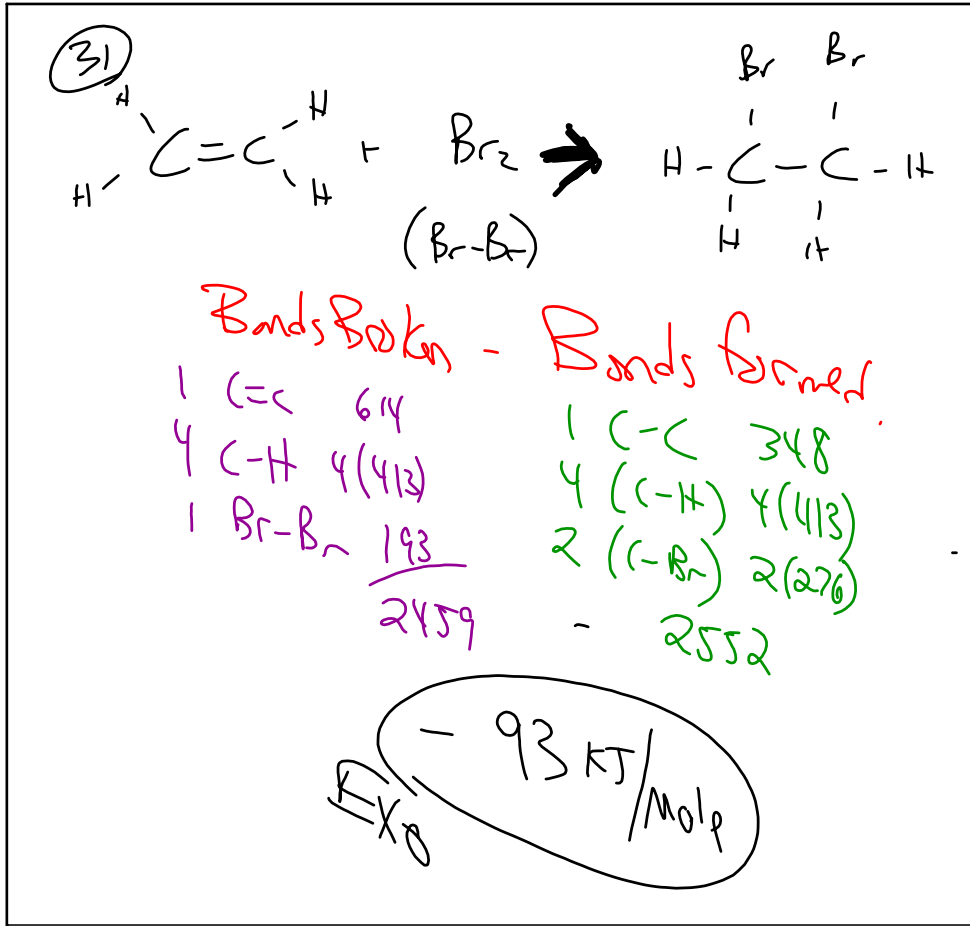 31
Br Br
H H
C=C + Br2 → H-C-C-H
H H
(Br-Br) H H
Bonds Broken - Bonds formed
1 C=C 614
4 C-H 4(413)
1 Br-Br 193
2459
1 C-C 348
4 (C-H) 4(413)
2 (C-Br) 2(276)
- 2552
- 93 KJ/Mole
Exo